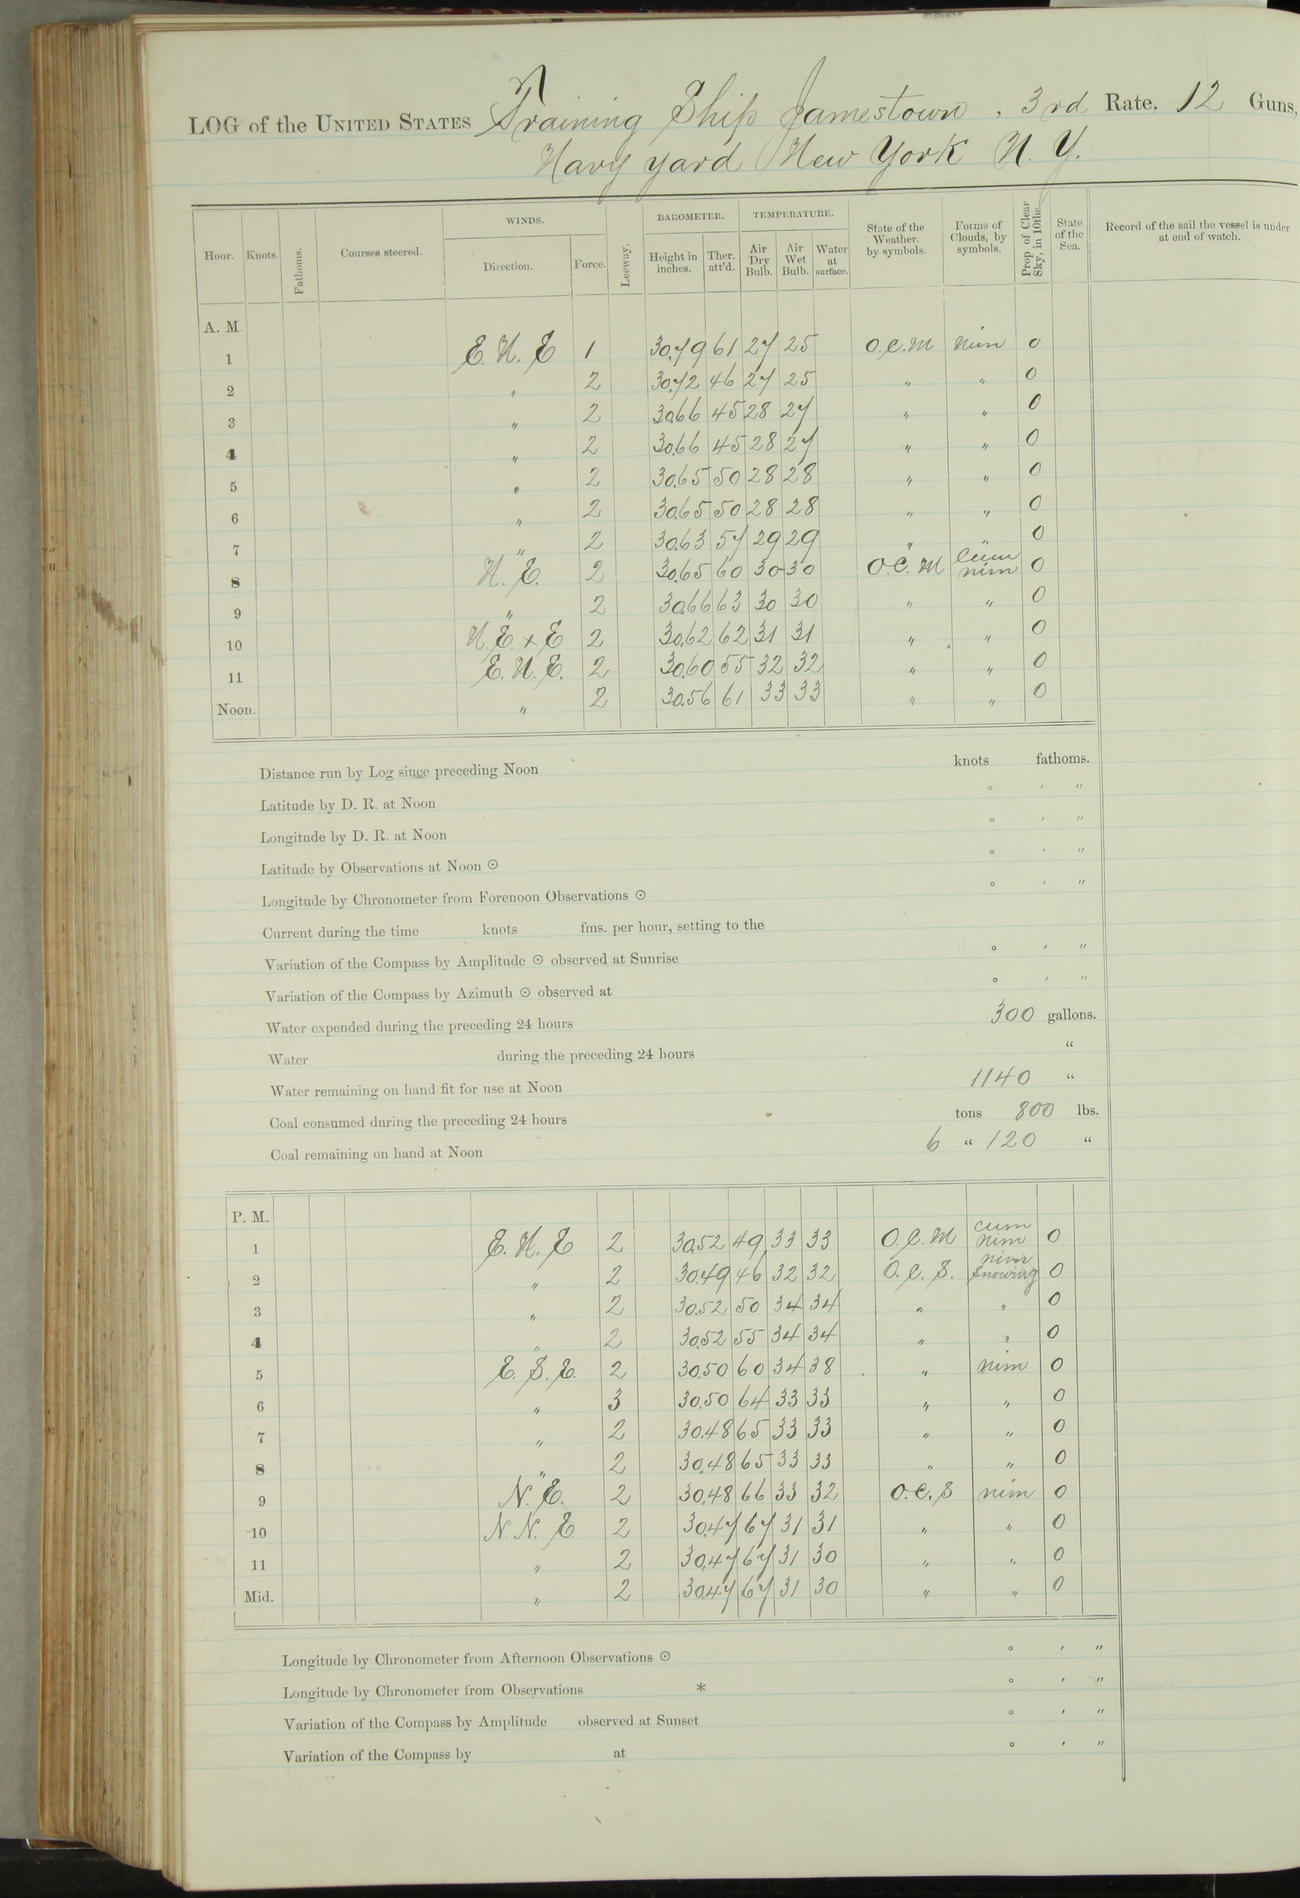 LOG of the UNITED STATES Training Ship Jamestown, 3rd Rate, 12 Guns,
Navy yard New York N. Y.
WINDS. BAROMETER. TEMPERATURE.
Hour. Knots. Fathoms. Courses steered. Direction. Force. Leeway. Height in inches. Ther. att'd. Air Dry Bulb. Air Wet Bulb. Water at surface. State of the Weather, by symbols. Forms of Clouds, by symbols. Prop. of Clear Sky, in 10ths. State of the Sea. Record of the sail the vessel is under at end of watch.
A. M.
1 E. N. E 1 30.79 61 27 25 O.C.M nim 0
2 " 2 30.72 46 27 25 " " 0
3 " 2 30.66 45 28 27 " " 0
4 " 2 30.66 45 28 27 " " 0
5 " 2 30.65 50 28 28 " " 0
6 " 2 30.65 50 28 28 " " 0
7 " 2 30.63 57 29 29 " " 0
8 N. E. 2 30.65 60 30 30 O.C.M cum nim 0
9 " 2 30.66 63 30 30 " " 0
10 N. E. x E 2 30.62 62 31 31 " " 0
11 E. N. E. 2 30.60 55 32 32 " " 0
Noon. " 2 30.56 61 33 33 " " 0
Distance run by Log since preceding Noon knots fathoms.
Latitude by D. R. at Noon ° ′ ″
Longitude by D. R. at Noon ° ′ ″
Latitude by Observations at Noon ⊙ ° ′ ″
Longitude by Chronometer from Forenoon Observations ⊙ ° ′ ″
Current during the time knots fms. per hour, setting to the
Variation of the Compass by Amplitude ⊙ observed at Sunrise ° ′ ″
Variation of the Compass by Azimuth ⊙ observed at ° ′ ″
Water expended during the preceding 24 hours 300 gallons.
Water during the preceding 24 hours "
Water remaining on hand fit for use at Noon 1140 "
Coal consumed during the preceding 24 hours tons 800 lbs.
Coal remaining on hand at Noon 6 " 120 "
P. M.
1 E. N. E 2 30.52 49 33 33 O.C.M cum nim 0
2 " 2 30.49 46 32 32 O.C.S. nim snowing 0
3 " 2 30.52 50 34 34 " " 0
4 " 2 30.52 55 34 34 " " 0
5 E. S. E. 2 30.50 60 34 38 " nim 0
6 " 3 30.50 64 33 33 " " 0
7 " 2 30.48 65 33 33 " " 0
8 " 2 30.48 65 33 33 " " 0
9 N. E. 2 30.48 66 33 32 O.C.S nim 0
10 N. N. E 2 30.47 67 31 31 " " 0
11 " 2 30.47 67 31 30 " " 0
Mid. " 2 30.47 67 31 30 " " 0
Longitude by Chronometer from Afternoon Observations ⊙ ° ′ ″
Longitude by Chronometer from Observations * ° ′ ″
Variation of the Compass by Amplitude observed at Sunset ° ′ ″
Variation of the Compass by at ° ′ ″